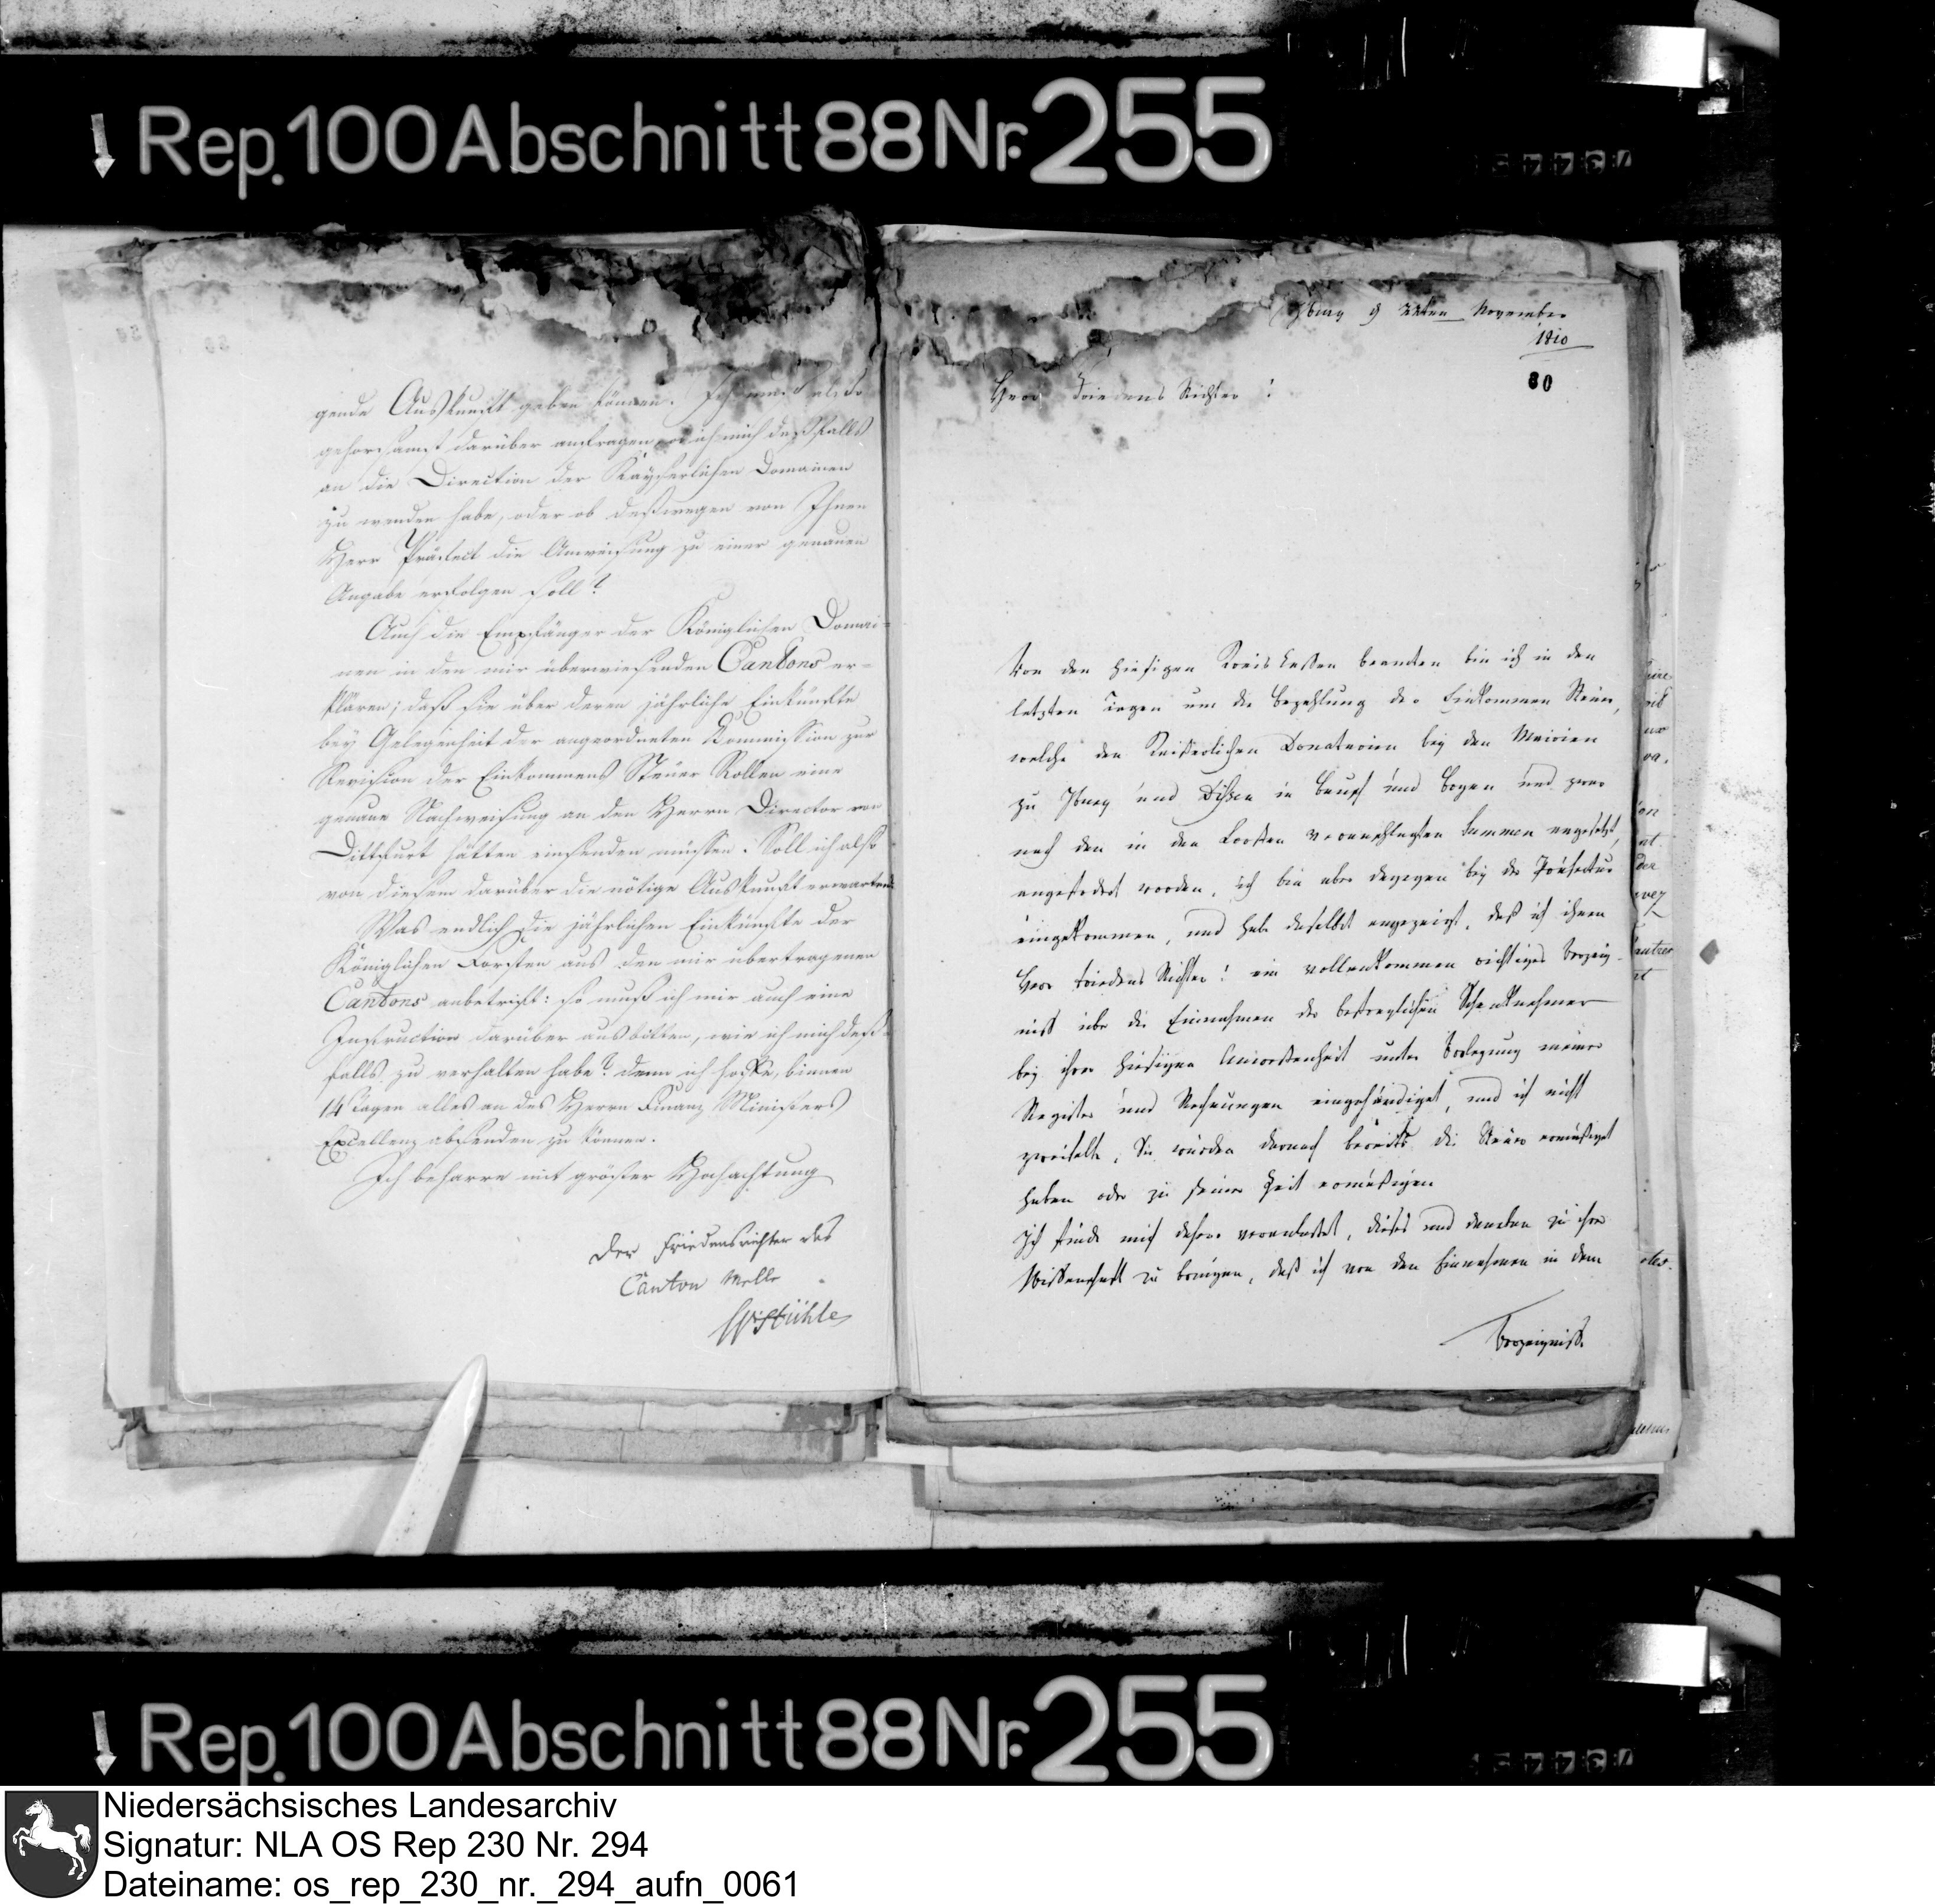 Rep. 100 Abschnitt 88 Nr. 255
gende Auskunft geben können. Ich muß also
gehorsamst darüber anfragen, ob ich mich deßfalls
an die Direction der Kayserlichen Domainen
zu wenden habe, oder ob deßwegen von Ihnen
Herr Präfect die Anweisung zu einer genauen
Angabe erfolgen soll?
Auch die Empfänger der Königlichen Domai=
nen in den mir überwiesenden Cantons er=
klären; daß sie über deren jährliche Einkünfte
bey Gelegenheit der angeordneten Kommission zur
Revision der Einkommens Steuer Rollen eine
genaue Nachweisung an den Herrn Director von
Dittfurt hätten einsenden müssen. Soll ich also
von diesem darüber die nötige Auskunft erwarten?
Was endlich die jährlichen Einkünfte der
Königlichen Forsten aus den mir übertragenen
Cantons anbetrift: so muß ich mir auch eine
Instruction darüber ausbitten, wie ich mich deß=
falls zu verhalten habe? denn ich hoffe, binnen
14 Tagen alles an des Herrn Finanz Ministers
Excellenz absenden zu können.
Ich beharre mit größter Hochachtung
Der Friedensrichter des
Canton Melle
Stühle
Iburg d 22ten November
1810
80
Herr Friedens Richter!
Von den hiesigen Kreis Kassen beamten bin ich in den
letzten Tagen um die Bezahlung der Einkommen Steuer,
welche den Kaiserlichen Donatarien bey den Mairien
zu Iburg und Dissen in Bausch und Bogen und zwar
nach den in den Loosen veranschlagten Summen angesetzt,
angefordert worden, ich bin aber dagegen bey der Präfectur
eingekommen, und habe daselbst angezeigt, daß ich ihnen
Herr Friedens Richter! ein vollenkommen richtiges Verzeig-
niß über die Einnahmen der Schenknehmer
bey ihrer hiesigen Anwesenheit unter Vorlegung meiner
Register und Rechnungen eingehändiget, und ich nicht
zweifelte, Sie würden darnach bereits die Steuer ermäßiget
haben oder zu seiner Zeit ermäßigen
Ich finde mich daher veranlasset, dieses und daneben zu ihrer
Wissenschaft zu bringen, daß ich von den Einnahmen in dem
Verzeigniß
Rep. 100 Abschnitt 88 Nr. 255
Niedersächsisches Landesarchiv
Signatur: NLA OS Rep 230 Nr. 294
Dateiname: os_rep_230_nr._294_aufn_0061